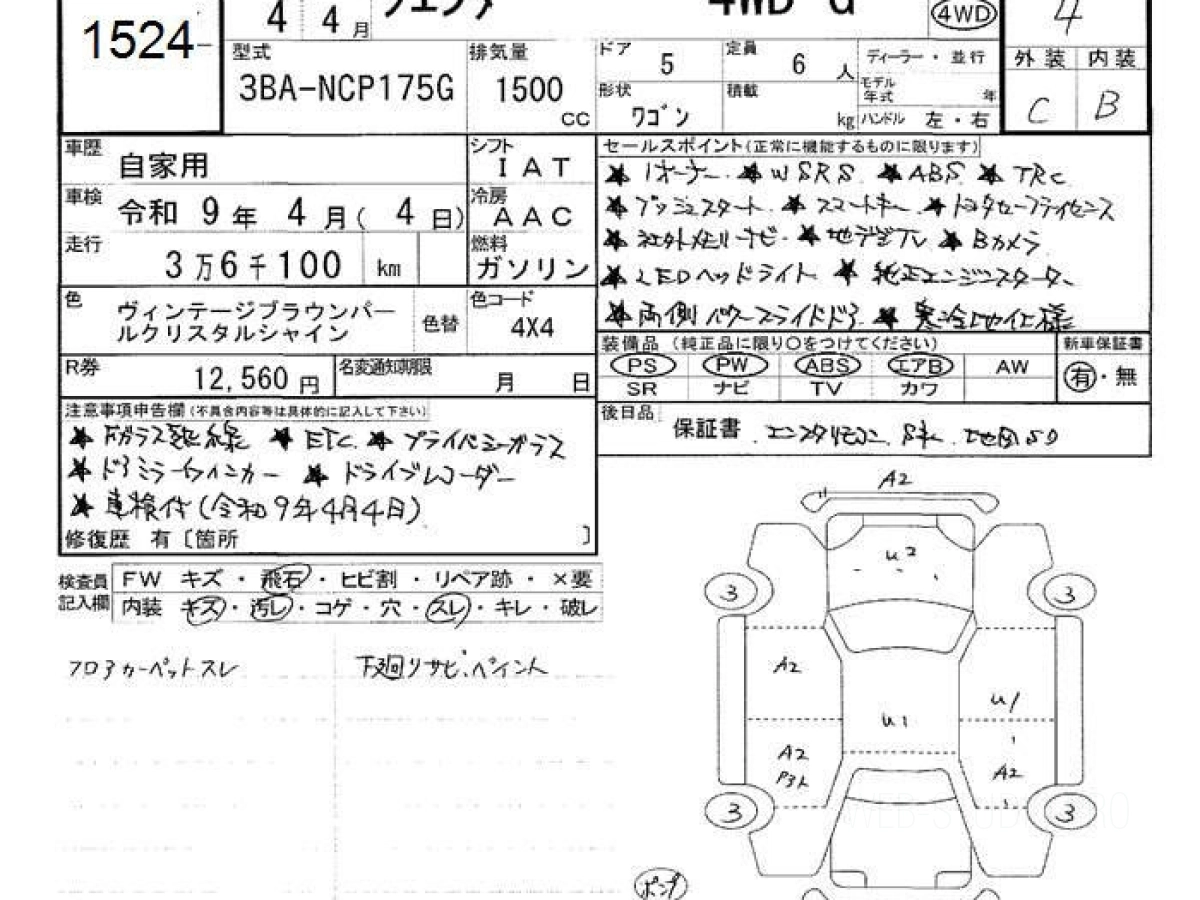 1524
4 4月
4WD G
4WD
4
型式
3BA-NCP175G
排気量
1500
cc
ドア 5
定員 6 人
ディーラー・並行
形状
ワゴン
積載
kg
モデル年式
年
ハンドル 左・右
外装 内装
C B
車歴
自家用
シフト
IAT
車検
令和 9年 4月(4日)
冷房
AAC
走行
3万6千100 km
燃料
ガソリン
色
ヴィンテージブラウンパー
ルクリスタルシャイン
色替
色コード
4X4
R券
12,560 円
名変通知期限
月 日
セールスポイント(正常に機能するものに限ります)
★1オーナー ★WSRS ★ABS ★TRC
★プッシュスタート ★スマートキー ★トヨタセーフティセンス
★社外メモリーナビ ★地デジTV ★Bカメラ
★LEDヘッドライト ★純正エンジンスターター
★両側パワースライドドア ★寒冷地仕様
装備品 (純正品に限り○をつけてください)
新車保証書
PS PW ABS エアB AW
SR ナビ TV カワ
有・無
後日品
保証書
注意事項申告欄(不具合内容等は具体的に記入して下さい)
★Fガラス熱線 ★ETC ★プライバシーガラス
★ドアミラーウィンカー ★ドライブレコーダー
★車検付(令和9年4月4日)
修復歴 有〔箇所 〕
検査員
記入欄
FW キズ・飛石・ヒビ割・リペア跡・×要
内装 キズ・汚レ・コゲ・穴・スレ・キレ・破レ
フロアカーペットスレ
下廻リサビ、ペイント
A2
U2
3 3
A2
U1
U1
A2
P3
A2
3 3